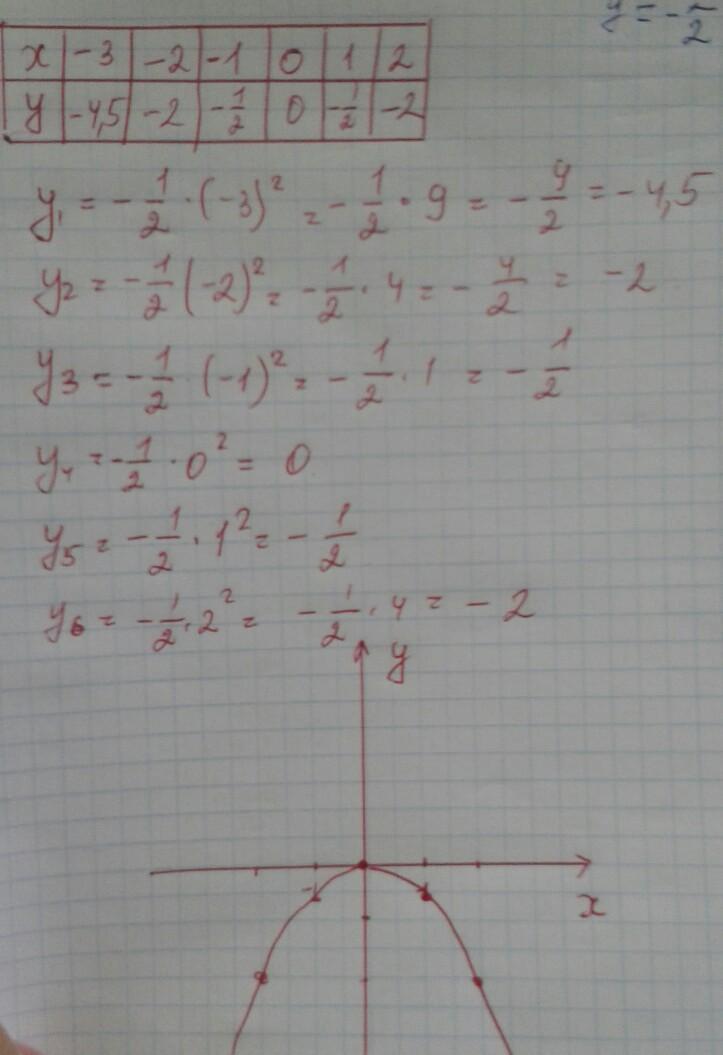 y = -
2
x | -3 | -2 | -1 | 0 | 1 | 2
y | -4,5 | -2 | -1/2 | 0 | -1/2 | -2
y₁ = -1/2 · (-3)² = -1/2 · 9 = -9/2 = -4,5
y₂ = -1/2 (-2)² = -1/2 · 4 = -4/2 = -2
y₃ = -1/2 · (-1)² = -1/2 · 1 = -1/2
y₄ = -1/2 · 0² = 0
y₅ = -1/2 · 1² = -1/2
y₆ = -1/2 · 2² = -1/2 · 4 = -2
y
x